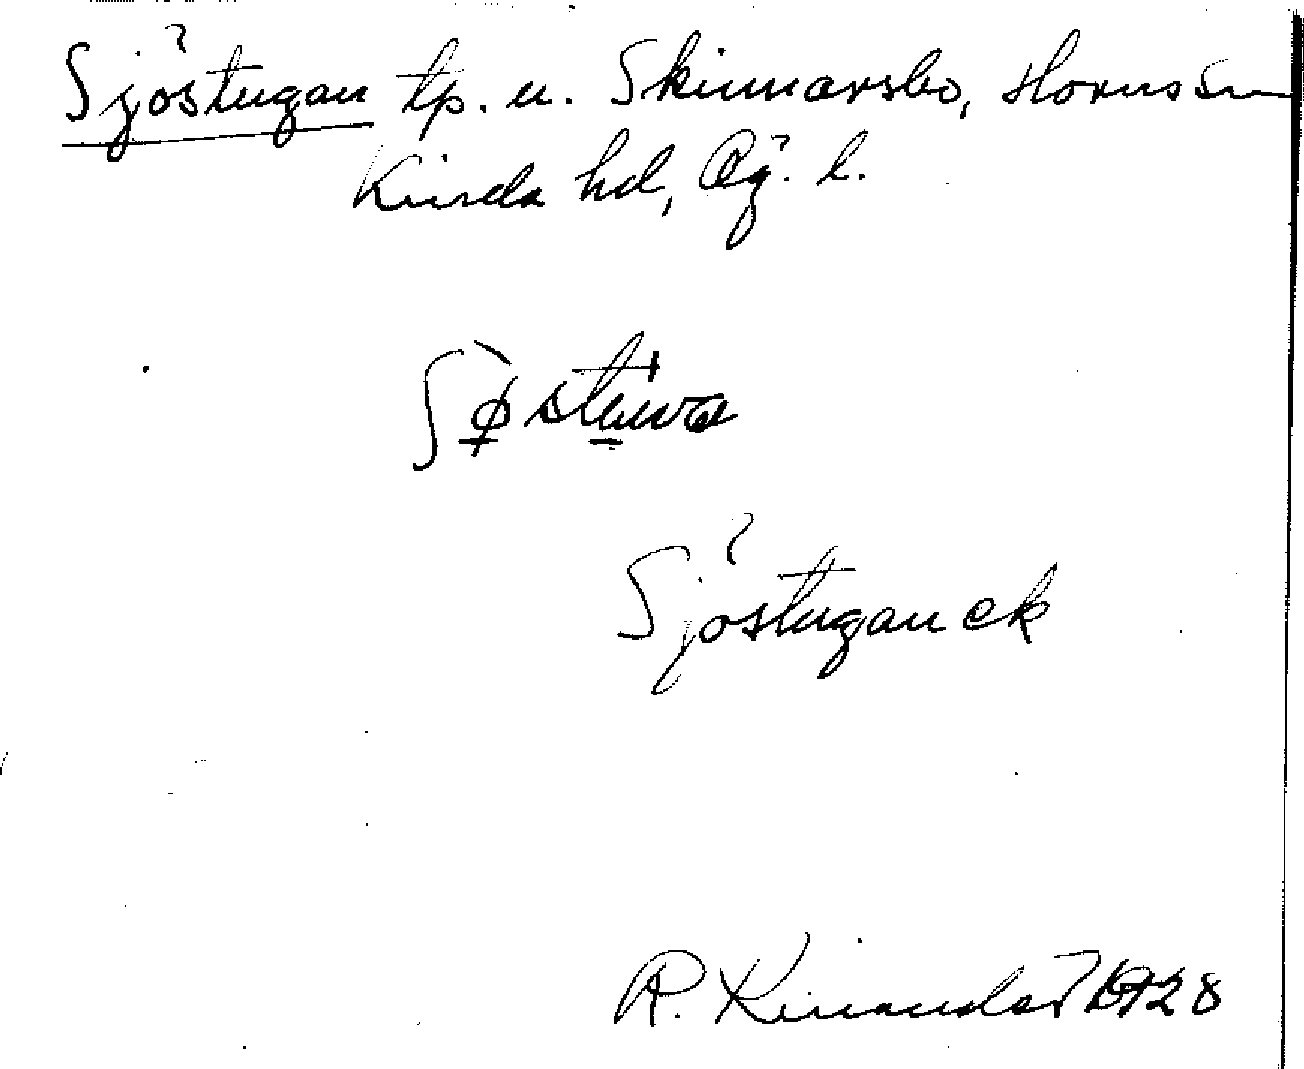 Sjöstugan tp. u. Skinnarsbo, Horns sn
Kinda hd, Ög. l.
Sjöstugan ek
R. Kinander 1928